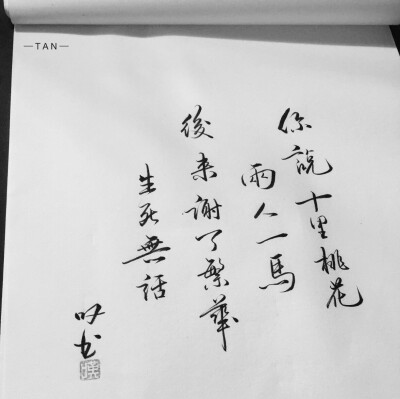 —TAN—
你說十里桃花
兩人一馬
後来謝了繁華
生死無話